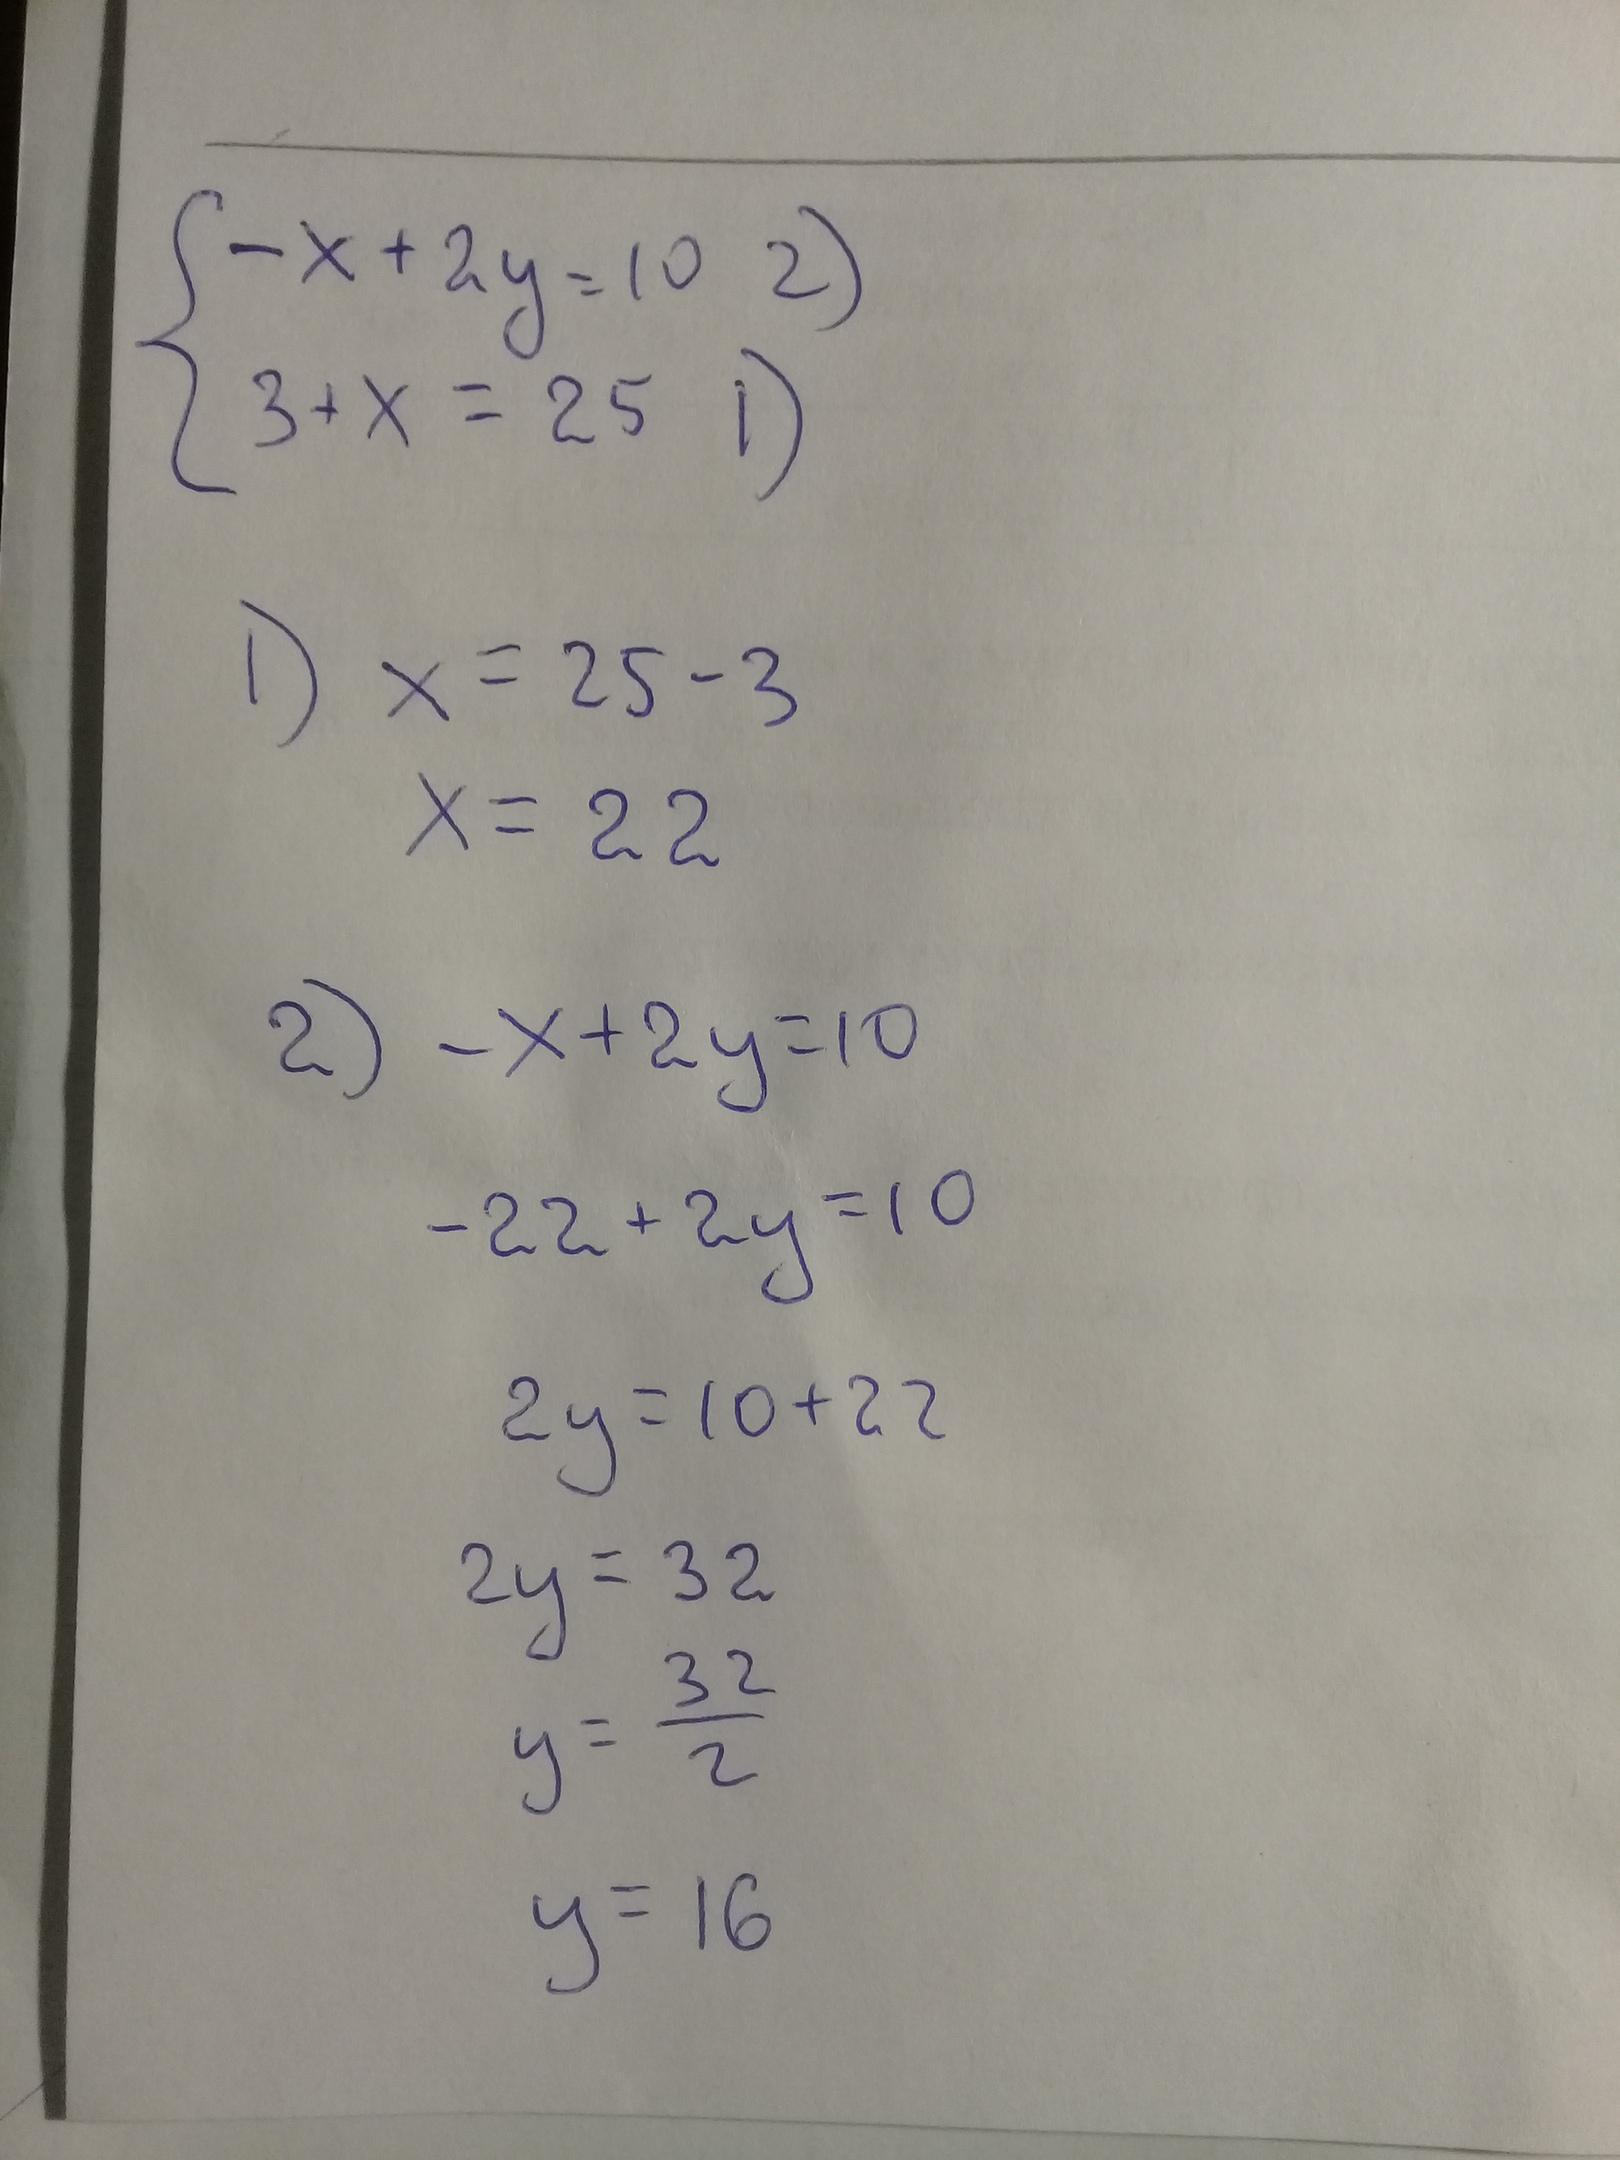 -x+2y=10 2)
3+x=25 1)
1) x=25-3
x=22
2) -x+2y=10
-22+2y=10
2y=10+22
2y=32
y=32/2
y=16